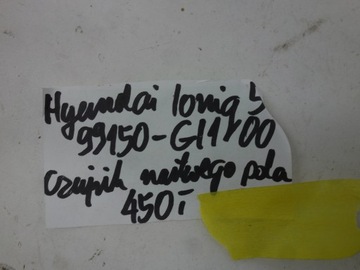 Hyundai Ioniq 5
99150-GI100
czujnik martwego pola
450 -